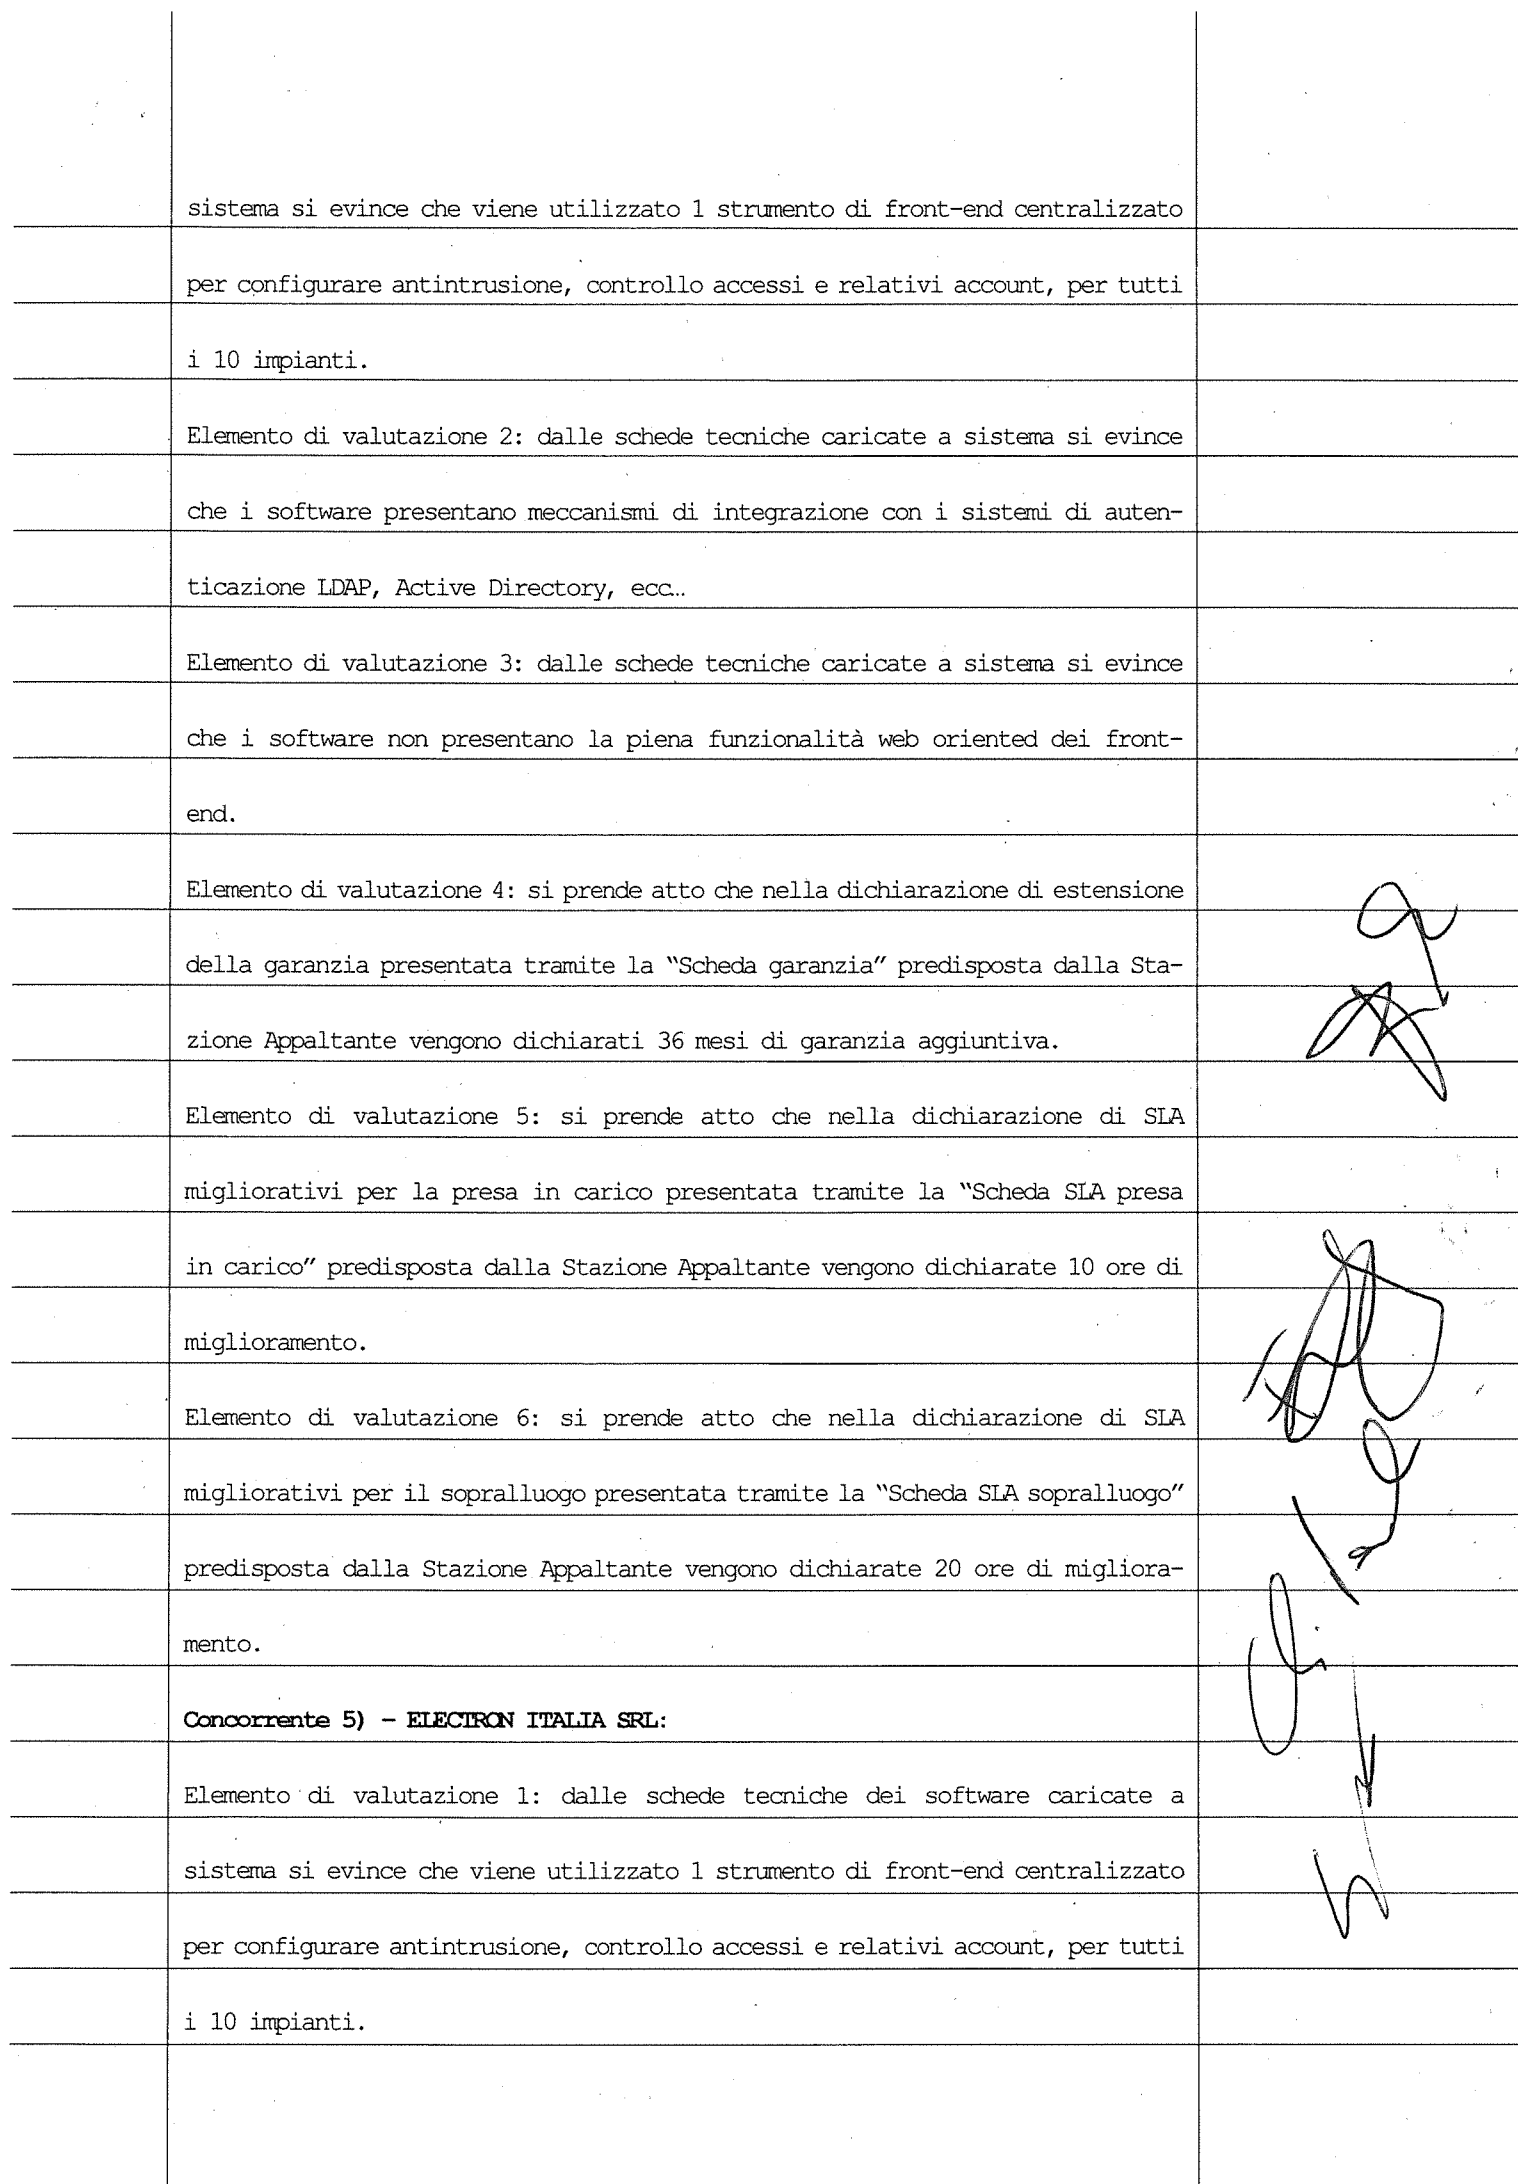 sistema si evince che viene utilizzato 1 strumento di front-end centralizzato
per configurare antintrusione, controllo accessi e relativi account, per tutti
i 10 impianti.
Elemento di valutazione 2: dalle schede tecniche caricate a sistema si evince
che i software presentano meccanismi di integrazione con i sistemi di auten-
ticazione LDAP, Active Directory, ecc…
Elemento di valutazione 3: dalle schede tecniche caricate a sistema si evince
che i software non presentano la piena funzionalità web oriented dei front-
end.
Elemento di valutazione 4: si prende atto che nella dichiarazione di estensione
della garanzia presentata tramite la “Scheda garanzia” predisposta dalla Sta-
zione Appaltante vengono dichiarati 36 mesi di garanzia aggiuntiva.
Elemento di valutazione 5: si prende atto che nella dichiarazione di SLA
migliorativi per la presa in carico presentata tramite la “Scheda SLA presa
in carico” predisposta dalla Stazione Appaltante vengono dichiarate 10 ore di
miglioramento.
Elemento di valutazione 6: si prende atto che nella dichiarazione di SLA
migliorativi per il sopralluogo presentata tramite la “Scheda SLA sopralluogo”
predisposta dalla Stazione Appaltante vengono dichiarate 20 ore di migliora-
mento.
Concorrente 5) – ELECTRON ITALIA SRL:
Elemento di valutazione 1: dalle schede tecniche dei software caricate a
sistema si evince che viene utilizzato 1 strumento di front-end centralizzato
per configurare antintrusione, controllo accessi e relativi account, per tutti
i 10 impianti.